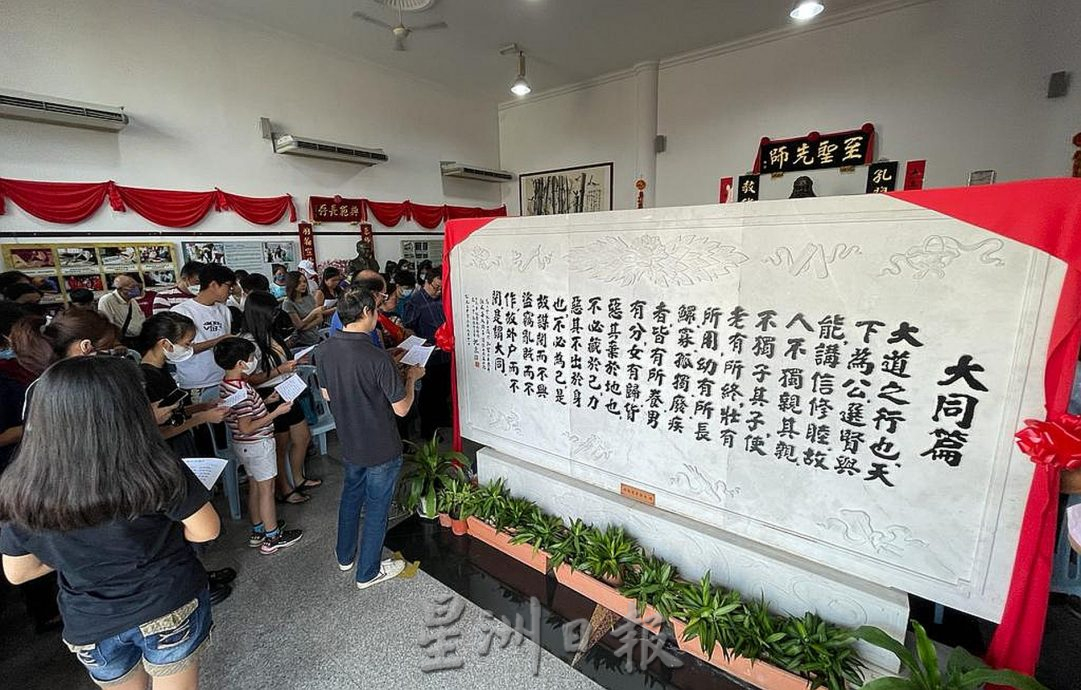 至聖先師
典範長存
大同篇
大道之行也、天
下為公、選賢與
能、講信修睦、故
人不獨親其親、
不獨子其子、使
老有所終、壯有
所用、幼有所長
鰥寡孤獨廢疾
者皆有所養男
有分、女有歸貨
惡其棄於地也、
不必藏於己力
惡其不出於身
也不必為己是
故謀閉而不興
盜竊亂賊而不
作故外戶而不
閉是謂大同、
星洲日報